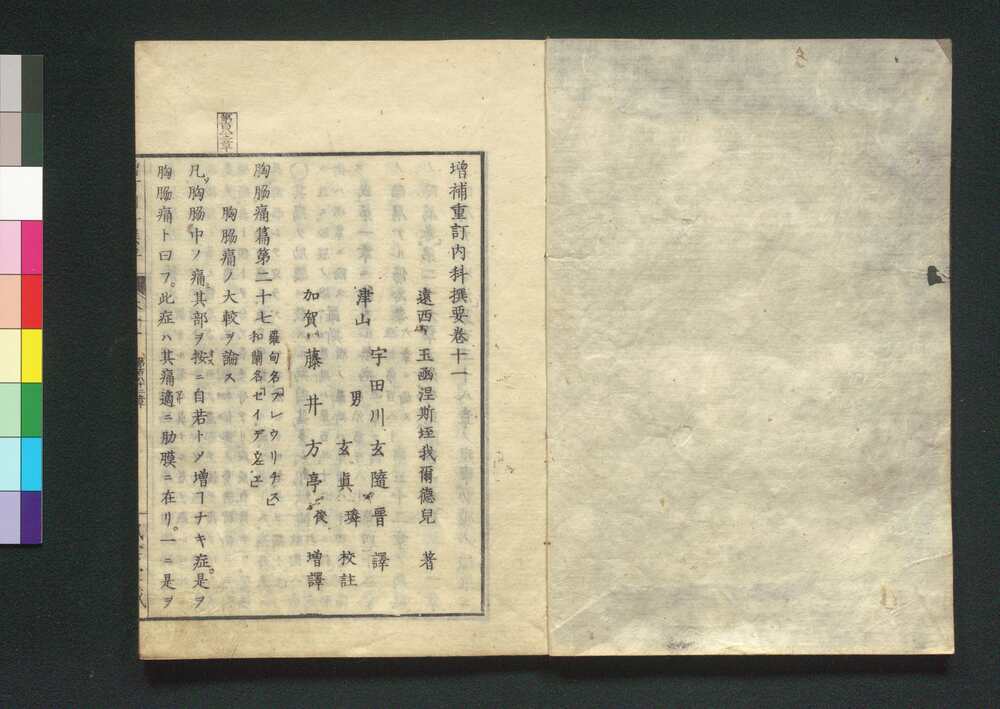 增補重訂内科撰要卷十一
遠西 玉函涅斯垤我爾德兒 著
津山 宇田川玄隨晋 譯
男 玄眞璘 校註
加賀 藤井方亭俊 增譯
胸腸痛篇第二十七 羅甸名「プレウリチス」
和蘭名「セイデ
胸腸痛ノ大較ヲ論ス
凡ソ胸腸中ノ痛其部ヲ按ニ自若トシ增ヿナキ症是ヲ
胸腸痛ト曰フ。此症ハ其痛適ニ肋膜ニ在リ。一ニ是ヲ